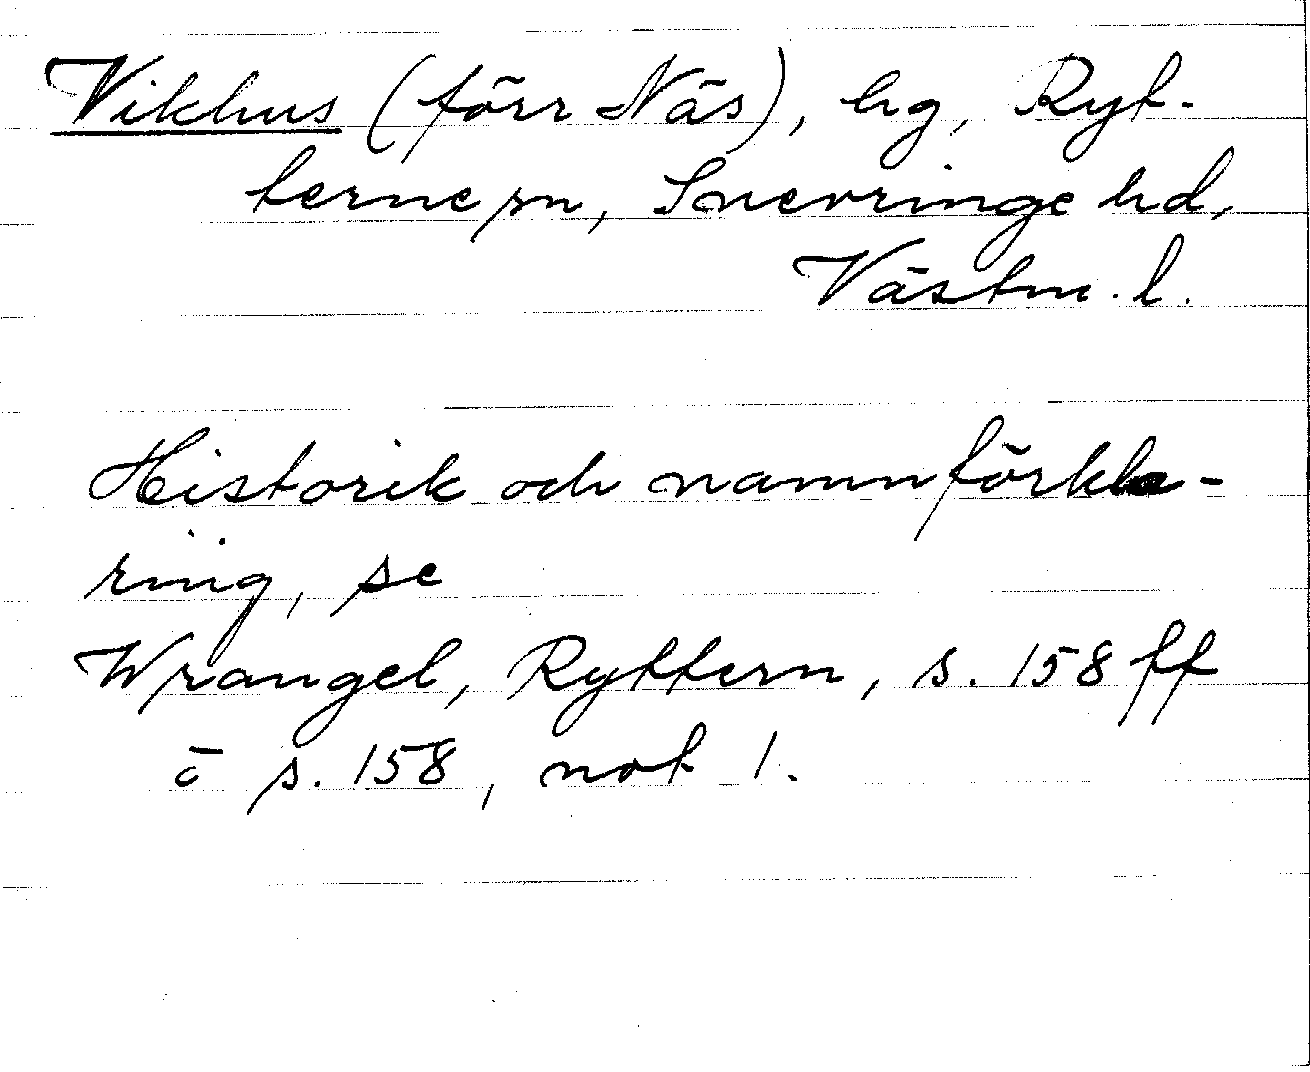 Vikhus (förr Näs), hg, Ryt-
terne sn, Snevringe hd,
Västm. l.
Historik och namnförkla-
ring, se
Wrangel, Ryttern, s. 158 ff
o s. 158, not 1.